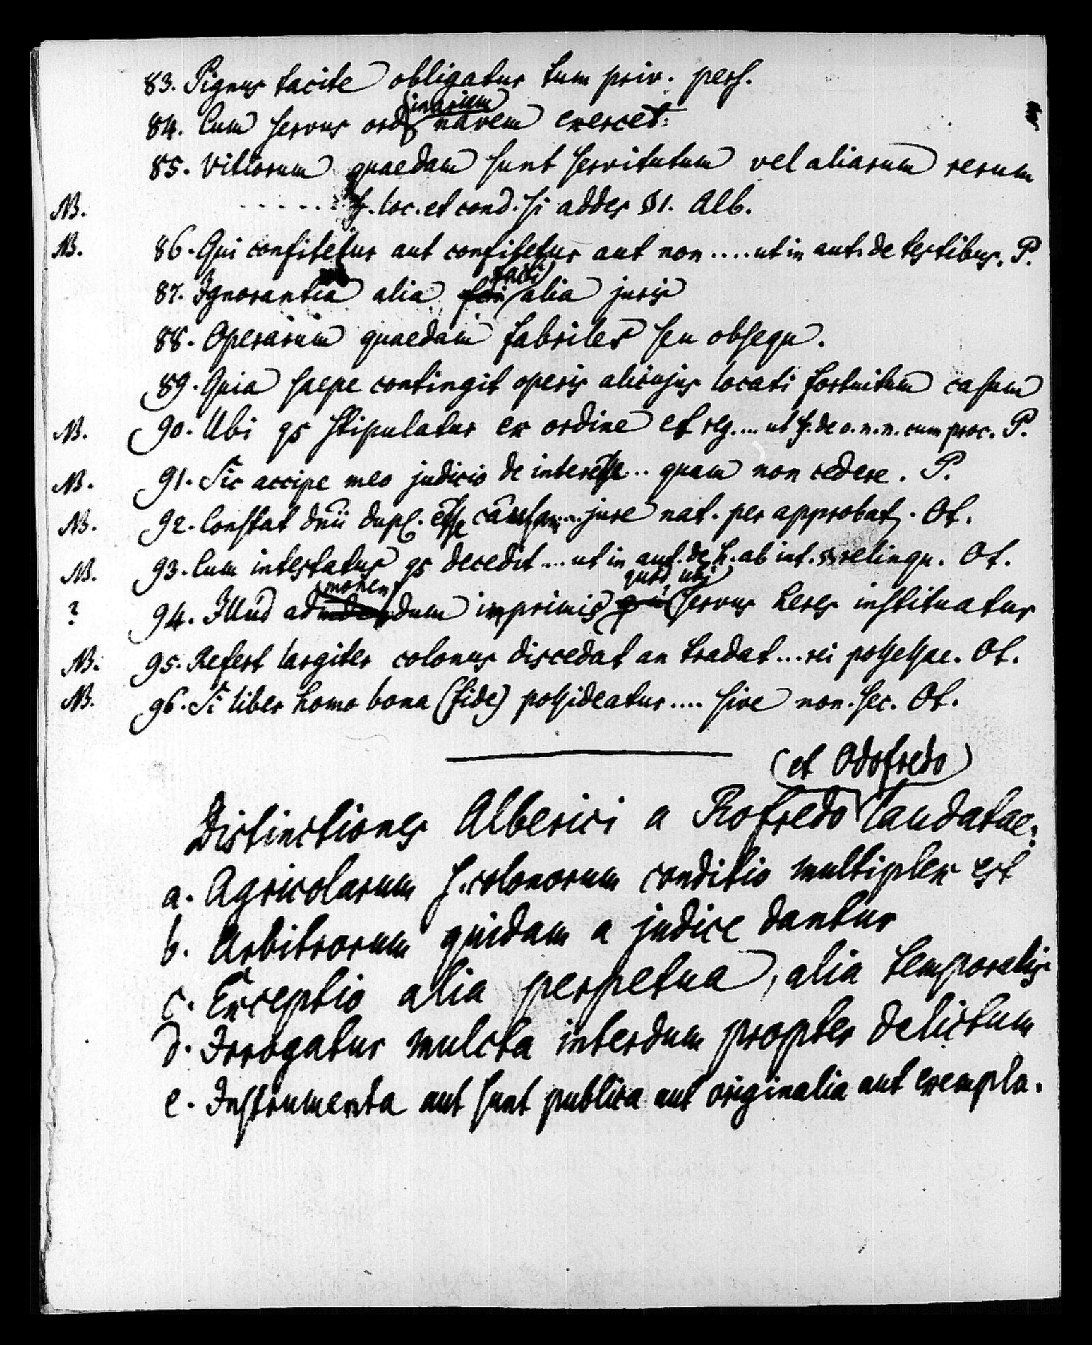 83. Pignus tacite obligatur tum priv. pers.
84. Cum servus ordinarium navem exercet.
85. Vitiorum quaedam sunt servitutum vel aliarum rerum
NB. ff. loc. et cond. si addes §1. Alb.
NB. 86. Qui confitetur aut confitetur aut non .... ut in aut. de testibus. P.
87. Ignorantia alia facti alia juris
88. Operarum quaedam fabriles seu obsequ.
89. Quia saepe contingit operis alicujus locati fortuitum casum
NB. 90. Ubi qs stipulatur ex ordine et reg .... ut ff. de o. n. n. cum proc. P.
NB. 91. Sic accipe meo judicio de interesse ... quam non cedere. P.
NB. 92. Constat dnii dupl. esse causam .... jure nat. per approbat. Ot.
NB. 93. Cum intestatus qs decedit .... ut in aut. de h. ab int. § relinqu. Ot.
? 94. Illud admonendum imprimis quod ubi servus heres instituatur
NB. 95. Refert largiter colonus discedat an tradat ... rei possessae. Ot.
NB. 96. Si liber homo bona (fide) possideatur .... sive non. sec. Ot.
Distinctiones Alberici a Rofredo (et Odofredo) laudatae:
a. Agricolarum s. colonorum conditio multiplex est
b. Arbitrorum quidam a judice dantur
c. Exceptio alia perpetua, alia temporalis
d. Irrogatur mulcta interdum propter delictum
e. Instrumenta aut sunt publica aut originalia aut exempla.